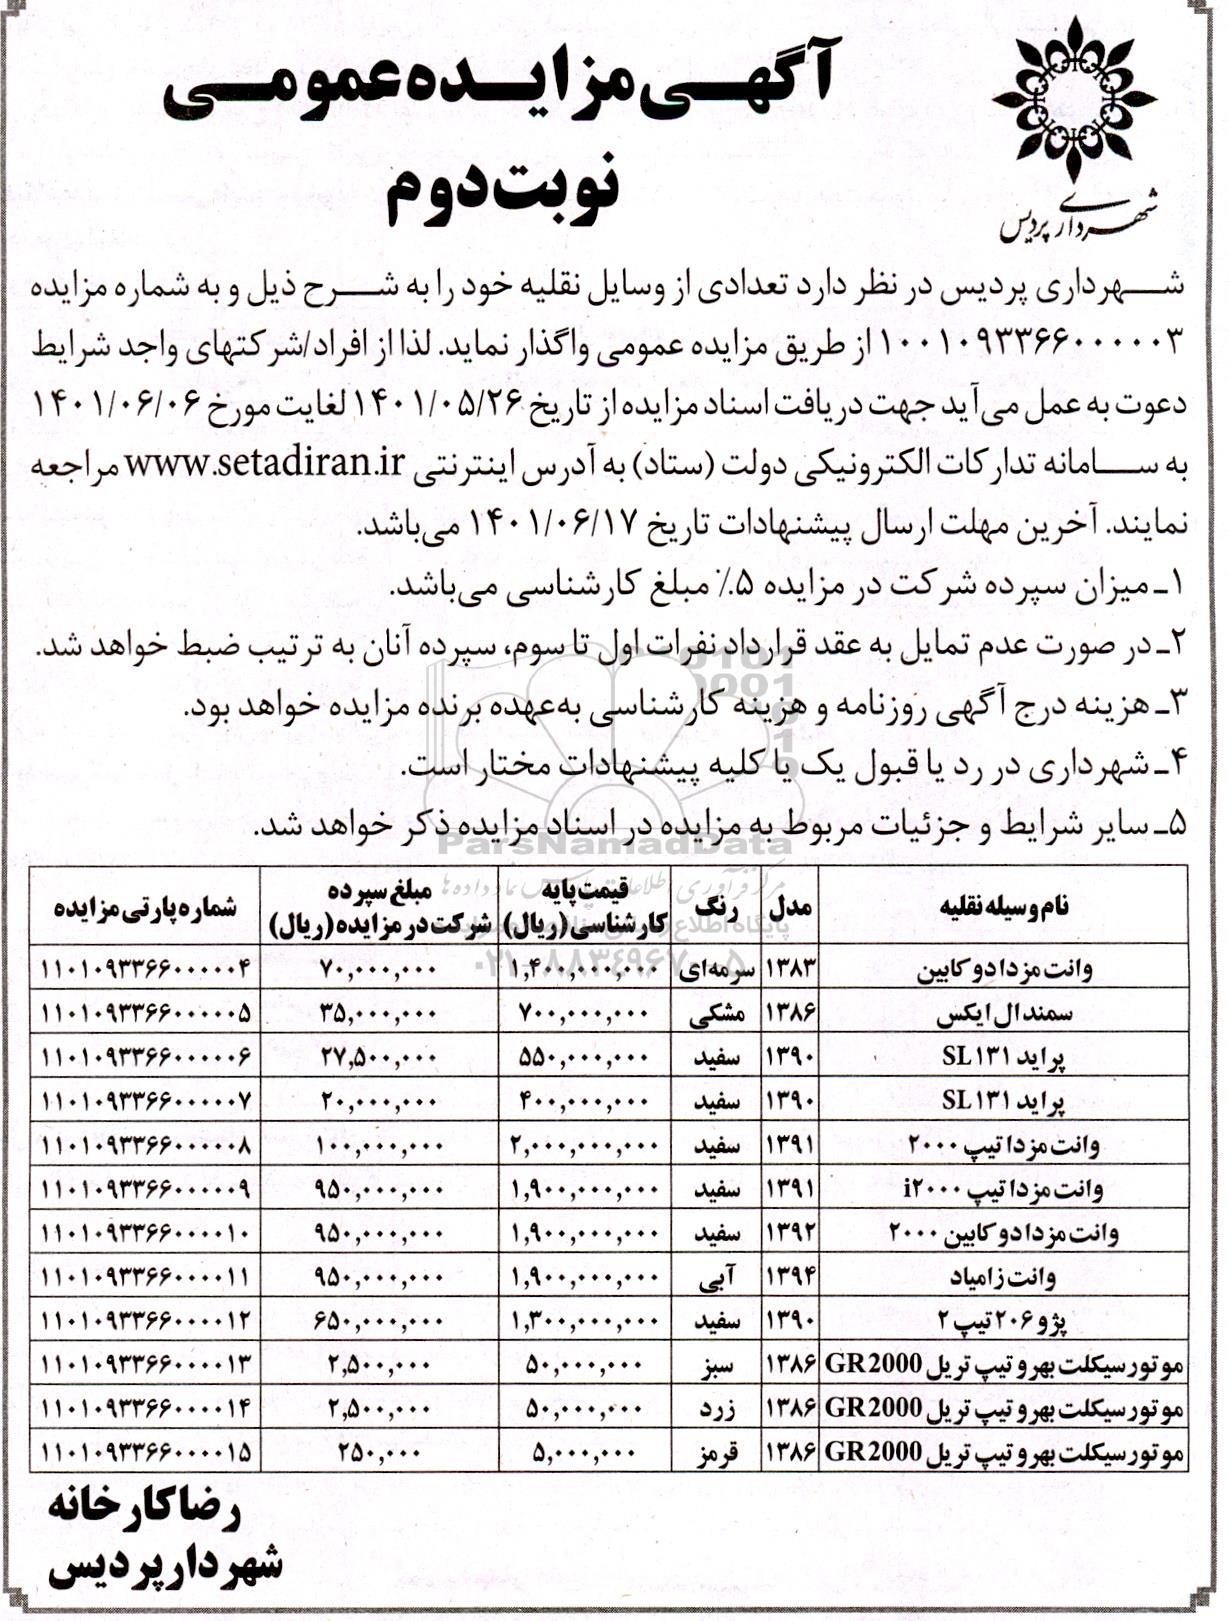 آگهی مزایده عمومی
نوبت دوم
شهرداری پردیس
شهرداری پردیس در نظر دارد تعدادی از وسایل نقلیه خود را به شرح ذیل و به شماره مزایده
۱۰۰۱۰۹۳۳۶۶۰۰۰۰۰۳ از طریق مزایده عمومی واگذار نماید. لذا از افراد/شرکتهای واجد شرایط
دعوت به عمل می‌آید جهت دریافت اسناد مزایده از تاریخ ۱۴۰۱/۰۵/۲۶ لغایت مورخ ۱۴۰۱/۰۶/۰۶
به سامانه تدارکات الکترونیکی دولت (ستاد) به آدرس اینترنتی www.setadiran.ir مراجعه
نمایند. آخرین مهلت ارسال پیشنهادات تاریخ ۱۴۰۱/۰۶/۱۷ می‌باشد.
۱ـ میزان سپرده شرکت در مزایده ۵٪ مبلغ کارشناسی می‌باشد.
۲ـ در صورت عدم تمایل به عقد قرارداد نفرات اول تا سوم، سپرده آنان به ترتیب ضبط خواهد شد.
۳ـ هزینه درج آگهی روزنامه و هزینه کارشناسی به‌عهده برنده مزایده خواهد بود.
۴ـ شهرداری در رد یا قبول یک یا کلیه پیشنهادات مختار است.
۵ـ سایر شرایط و جزئیات مربوط به مزایده در اسناد مزایده ذکر خواهد شد.
ParsNamadData
نام وسیله نقلیه | مدل | رنگ | قیمت پایه کارشناسی (ریال) | مبلغ سپرده شرکت در مزایده (ریال) | شماره پارتی مزایده
وانت مزدا دو کابین | ۱۳۸۳ | سرمه‌ای | ۱,۴۰۰,۰۰۰,۰۰۰ | ۷۰,۰۰۰,۰۰۰ | ۱۱۰۱۰۹۳۳۶۶۰۰۰۰۰۴
سمند ال ایکس | ۱۳۸۶ | مشکی | ۷۰۰,۰۰۰,۰۰۰ | ۳۵,۰۰۰,۰۰۰ | ۱۱۰۱۰۹۳۳۶۶۰۰۰۰۰۵
پراید SL۱۳۱ | ۱۳۹۰ | سفید | ۵۵۰,۰۰۰,۰۰۰ | ۲۷,۵۰۰,۰۰۰ | ۱۱۰۱۰۹۳۳۶۶۰۰۰۰۰۶
پراید SL۱۳۱ | ۱۳۹۰ | سفید | ۴۰۰,۰۰۰,۰۰۰ | ۲۰,۰۰۰,۰۰۰ | ۱۱۰۱۰۹۳۳۶۶۰۰۰۰۰۷
وانت مزدا تیپ ۲۰۰۰ | ۱۳۹۱ | سفید | ۲,۰۰۰,۰۰۰,۰۰۰ | ۱۰۰,۰۰۰,۰۰۰ | ۱۱۰۱۰۹۳۳۶۶۰۰۰۰۰۸
وانت مزدا تیپ i۲۰۰۰ | ۱۳۹۱ | سفید | ۱,۹۰۰,۰۰۰,۰۰۰ | ۹۵۰,۰۰۰,۰۰۰ | ۱۱۰۱۰۹۳۳۶۶۰۰۰۰۰۹
وانت مزدا دو کابین ۲۰۰۰ | ۱۳۹۲ | سفید | ۱,۹۰۰,۰۰۰,۰۰۰ | ۹۵۰,۰۰۰,۰۰۰ | ۱۱۰۱۰۹۳۳۶۶۰۰۰۰۱۰
وانت زامیاد | ۱۳۹۴ | آبی | ۱,۹۰۰,۰۰۰,۰۰۰ | ۹۵۰,۰۰۰,۰۰۰ | ۱۱۰۱۰۹۳۳۶۶۰۰۰۰۱۱
پژو ۲۰۶ تیپ ۲ | ۱۳۹۰ | سفید | ۱,۳۰۰,۰۰۰,۰۰۰ | ۶۵۰,۰۰۰,۰۰۰ | ۱۱۰۱۰۹۳۳۶۶۰۰۰۰۱۲
موتورسیکلت بهرو تیپ تریل GR2000 | ۱۳۸۶ | سبز | ۵۰,۰۰۰,۰۰۰ | ۲,۵۰۰,۰۰۰ | ۱۱۰۱۰۹۳۳۶۶۰۰۰۰۱۳
موتورسیکلت بهرو تیپ تریل GR2000 | ۱۳۸۶ | زرد | ۵۰,۰۰۰,۰۰۰ | ۲,۵۰۰,۰۰۰ | ۱۱۰۱۰۹۳۳۶۶۰۰۰۰۱۴
موتورسیکلت بهرو تیپ تریل GR2000 | ۱۳۸۶ | قرمز | ۵,۰۰۰,۰۰۰ | ۲۵۰,۰۰۰ | ۱۱۰۱۰۹۳۳۶۶۰۰۰۰۱۵
رضا کارخانه
شهردار پردیس